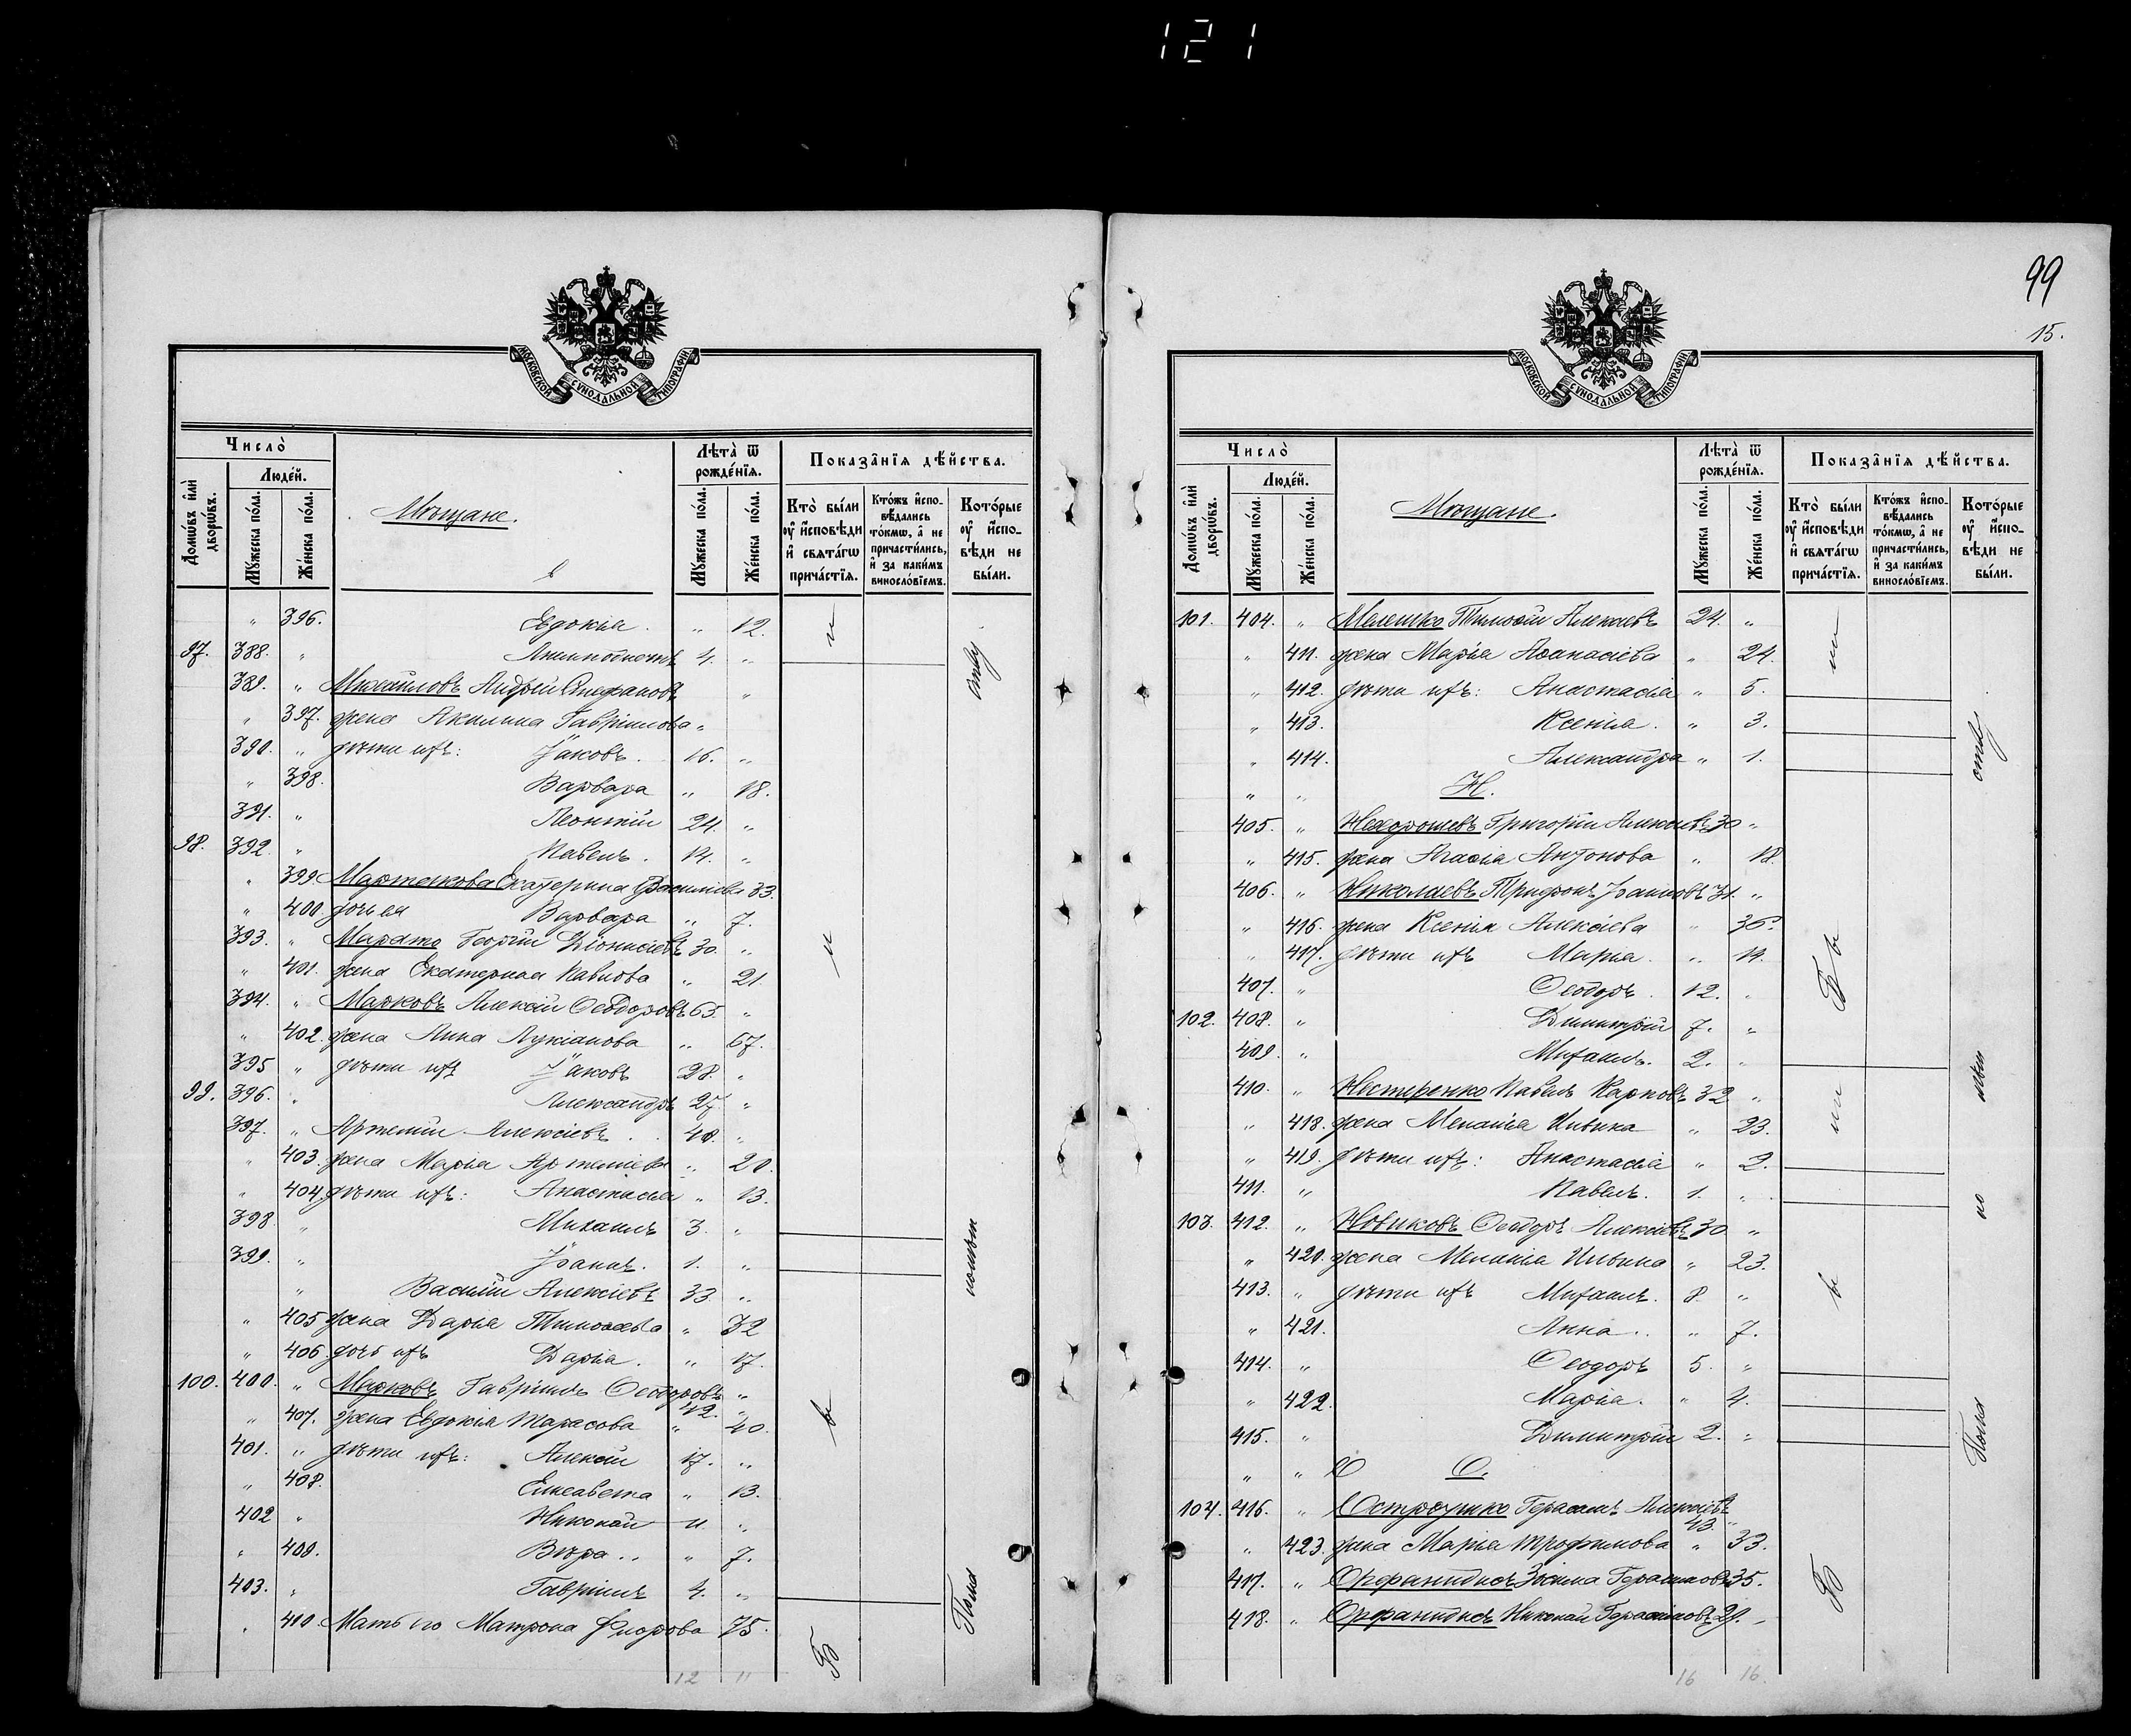 121
МОСКОВСКОЙ СѴНОДАЛЬНОЙ ТИПОГРАФІИ
Число̀
Людей.
Домѡ́въ и҆лѝ дворѡ́въ.
Мꙋ́жеска по́ла.
Же́нска по́ла.
Мѣщане.
Лѣта̀ ѿ рожде́нїѧ.
Мꙋ́жеска по́ла.
Же́нска по́ла.
Показа̂нїѧ дѣ́йства.
Кто̀ бы́ли ᲂу҆ и҆сповѣди и҆ свѧта́гѡ прича́стїѧ.
Кто́жъ и҆спо-вѣдались то́кмѡ, а҆ не причасти́лись, и҆ за каки́мъ винослові́емъ.
Кото́рые ᲂу҆ и҆спо-вѣди не бы́ли.
" 396. Евдокія. " 12.
97. 388. " 4. "
389. " Михайловъ Андрей Стефановъ "
" 397. жена Акилина Гавріилова "
390. " дѣти ихъ: Іаковъ. 16. "
" 398. Варвара " 18.
391. " Леонтій 24. "
98. 392. " Павелъ. 14. "
" 399 Мартенкова Екатерина Васильева 33.
" 400 дочь ея Варвара " 7.
393. " Георгій Діонисіевъ 30. "
" 401. жена Екатерина Павлова " 21
394. " Марковъ Алексій Ѳеодоровъ 65. "
" 402. жена Анна Лукіанова " 67.
395 " дѣти ихъ Іаковъ 28. "
99. 396. " Александръ 25. "
397. " Артемій Алексіевъ. 40. "
" 403. жена Марія Артеміева " 20.
" 404 дѣти ихъ: Анастасія " 13.
398 " Михаилъ 3. "
399. " Іоаннъ. 1. "
" Василій Алексіевъ 33. "
" 405 жена Дарья Тимоѳеева " 32
" 406. дочь ихъ Дарія. " 17.
100. 400. " Марковъ Гавріилъ Ѳеодоровъ 42. "
" 407. жена Евдокія Тарасова " 40.
401. " дѣти ихъ: Алексій 17. "
" 408. Елисавета " 13.
402 " Николай 11 "
" 409. Вѣра.. " 7.
403. " Гавріилъ 4. "
" 410 Мать его Матрона Флорова 75.
12 11
99
15.
МОСКОВСКОЙ СѴНОДАЛЬНОЙ ТИПОГРАФІИ
Число̀
Людей.
Домѡ́въ и҆лѝ дворѡ́въ.
Мꙋ́жеска по́ла.
Же́нска по́ла.
Мѣщане.
Лѣта̀ ѿ рожде́нїѧ.
Мꙋ́жеска по́ла.
Же́нска по́ла.
Показа̂нїѧ дѣ́йства.
Кто̀ бы́ли ᲂу҆ и҆сповѣди и҆ свѧта́гѡ прича́стїѧ.
Кто́жъ и҆спо-вѣдались то́кмѡ, а҆ не причасти́лись, и҆ за каки́мъ винослові́емъ.
Кото́рые ᲂу҆ и҆спо-вѣди не бы́ли.
101. 404. " Мелешко Тимоѳей Алексіевъ 24. "
" 411. жена Марія Аѳанасіева " 24.
" 412. дѣти ихъ: Анастасія " 5.
" 413. Ксенія. " 3.
" 414. Александра " 1.
" " Н.
405. " Нехорошевъ Григорій Алексіевъ 30 "
" 415. жена Агаѳія Антонова " 18
406. " Николаевъ Трифонъ Іоанновъ 31. "
" 416. жена Ксенія Алексіева " 36.
" 417. дѣти ихъ Марія. " 14.
407. " Ѳеодоръ. 12. "
102. 408. " Димитрій 7. "
409. " Михаилъ. 2. "
410. " Нестеренко Павелъ Карповъ 32 "
" 418. жена Меланія Ильина " 23.
" 419. дѣти ихъ: Анастасія " 2.
411. " Павелъ. 1. "
103. 412. " Новиковъ Ѳеодоръ Алексіевъ 30 "
" 420. жена Меланія Ильина " 23.
413. " дѣти ихъ Михаилъ. 8. "
" 421. Анна.. " 7.
414. " Ѳеодоръ 5. "
" 422. Марія. " 4.
415. " Димитрій 2. "
" " О.
104. 416. " Остроушко Герасимъ Алексіевъ 43. "
" 423. жена Марія Трофимова " 33.
417. " Орфанидисъ Зосима Герасимовъ 35.
418. " Орфанидисъ Николай Герасимовъ 29.
16 16.